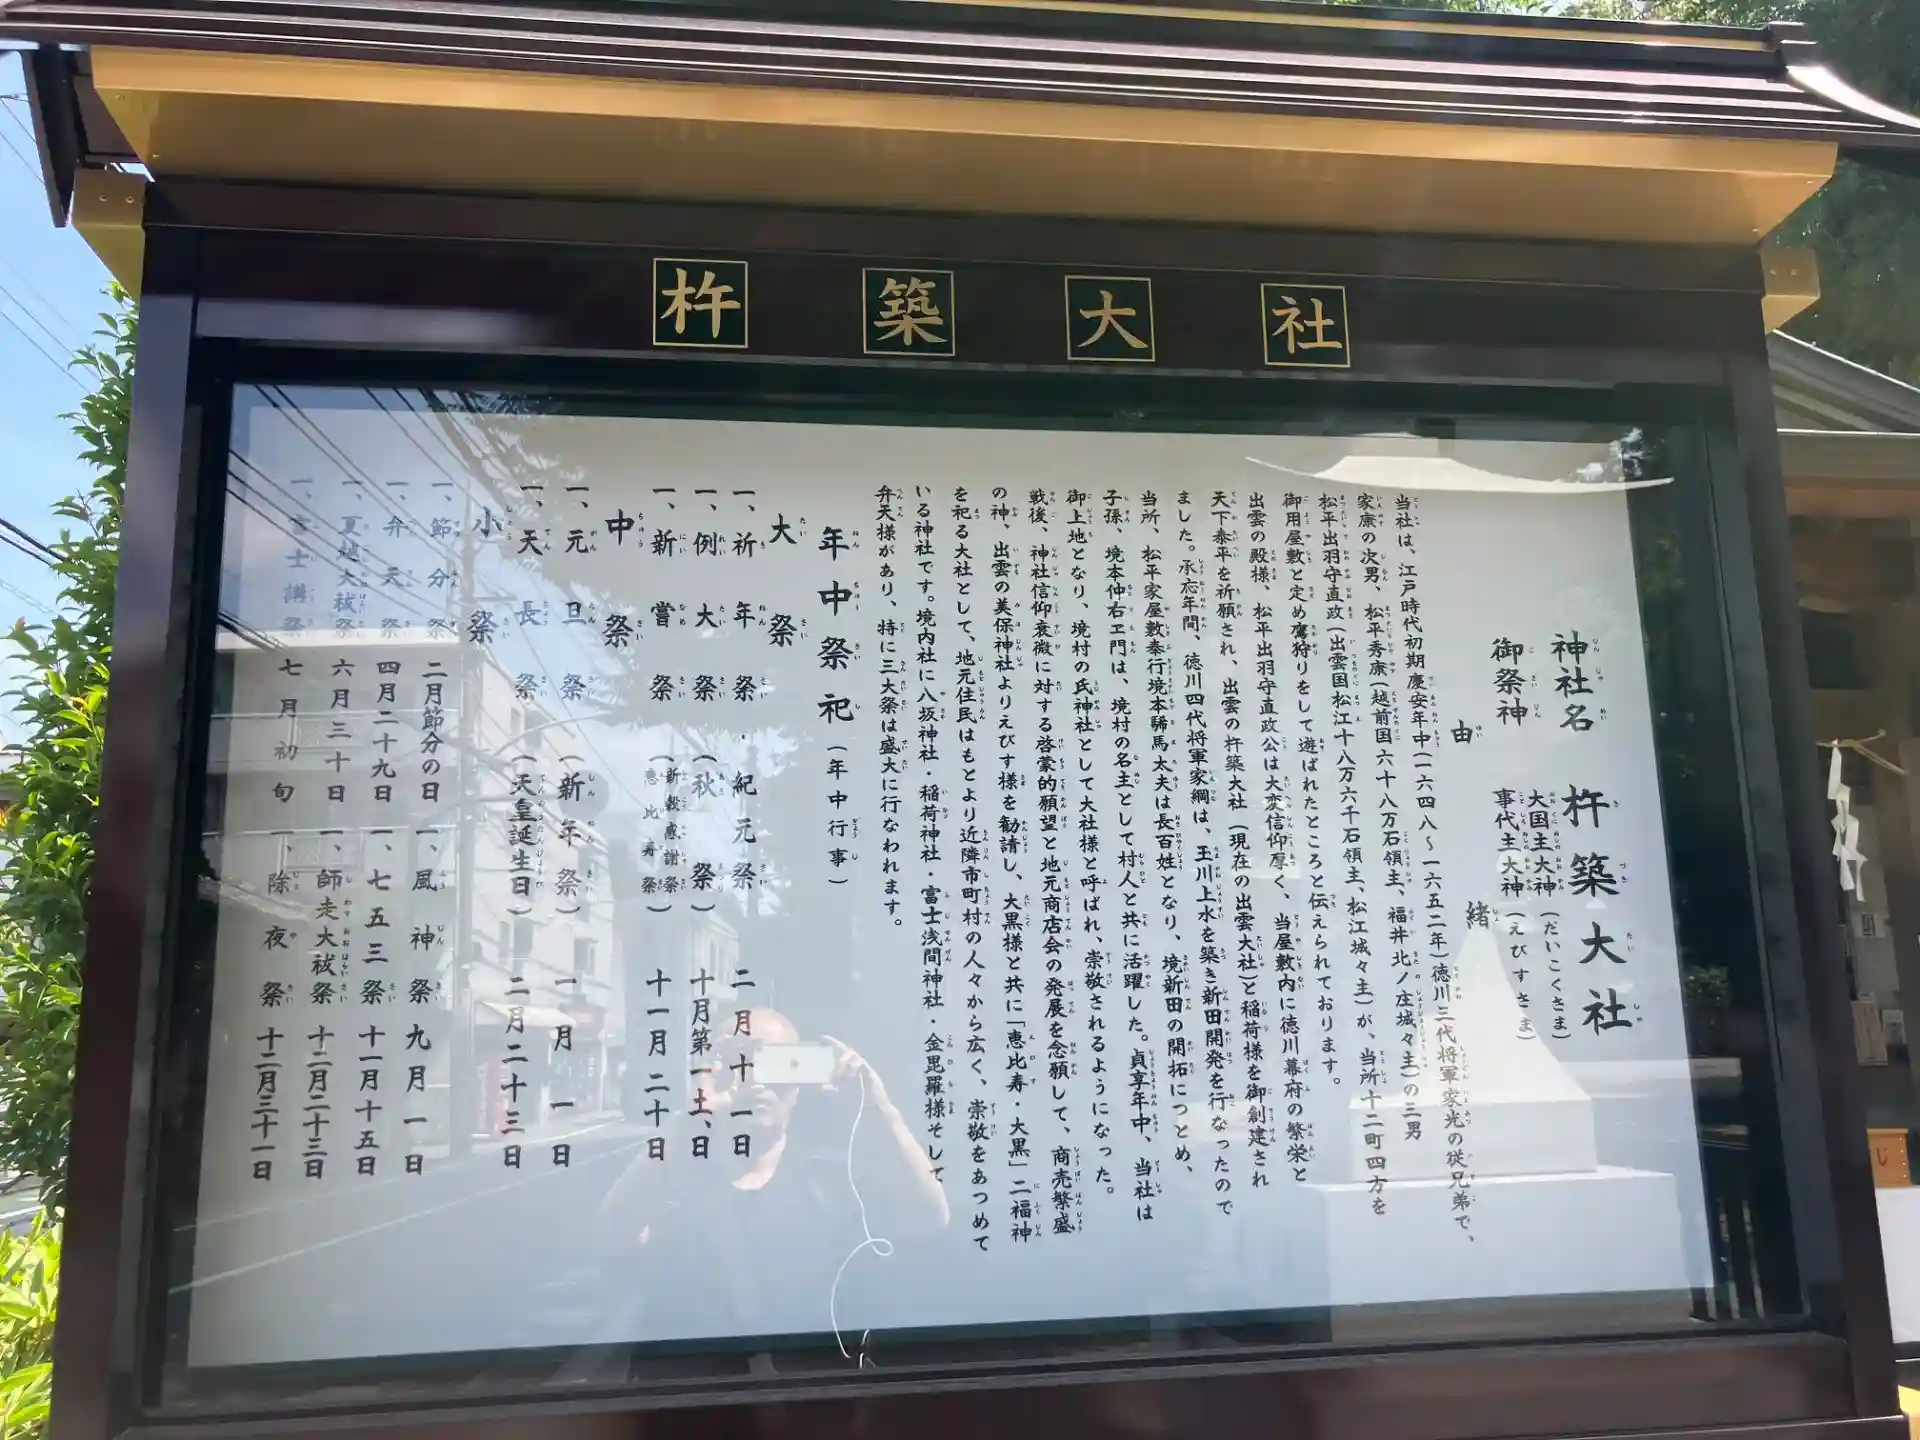 杵築大社
神社名 杵築大社
御祭神 大国主大神（だいこくさま）
事代主大神（えびすさま）
由緒
当社は、江戸時代初期慶安年中（一六四八〜一六五二年）徳川三代将軍家光の従兄弟で、
家康の次男、松平秀康（越前国六十八万石領主、福井北ノ庄城々主）の三男
松平出羽守直政（出雲国松江十八万六千石領主、松江城々主）が、当所十二町四方を
御用屋敷と定め鷹狩りをして遊ばれたところと伝えられております。
出雲の殿様、松平出羽守直政公は大変信仰厚く、当屋敷内に徳川幕府の繁栄と
天下泰平を祈願され、出雲の杵築大社（現在の出雲大社）と稲荷様を御創建され
ました。承応年間、徳川四代将軍家綱は、玉川上水を築き新田開発を行なったので
当所、松平家屋敷奉行境本𩣆馬太夫は長百姓となり、境新田の開拓につとめ、
子孫、境本仲右エ門は、境村の名主として村人と共に活躍した。貞享年中、当社は
御上地となり、境村の氏神社として大社様と呼ばれ、崇敬されるようになった。
戦後、神社信仰衰微に対する啓蒙的願望と地元商店会の発展を念願して、商売繁盛
の神、出雲の美保神社よりえびす様を勧請し、大黒様と共に「恵比寿・大黒」二福神
を祀る大社として、地元住民はもとより近隣市町村の人々から広く、崇敬をあつめて
いる神社です。境内社に八坂神社・稲荷神社・富士浅間神社・金毘羅様そして
弁天様があり、特に三大祭は盛大に行なわれます。
年中祭祀（年中行事）
大祭
一、祈年祭・紀元祭 二月十一日
一、例大祭（秋祭） 十月第一土、日
一、新嘗祭（新穀感謝祭 恵比寿祭） 十一月二十日
中祭
一、元旦祭（新年祭） 一月一日
一、天長祭（天皇誕生日） 二月二十三日
小祭
一、節分祭 二月節分の日 一、風神祭 九月一日
一、弁天祭 四月二十九日 一、七五三祭 十一月十五日
一、夏越大祓祭 六月三十日 一、師走大祓祭 十二月二十三日
一、富士講祭 七月初旬 一、除夜祭 十二月三十一日